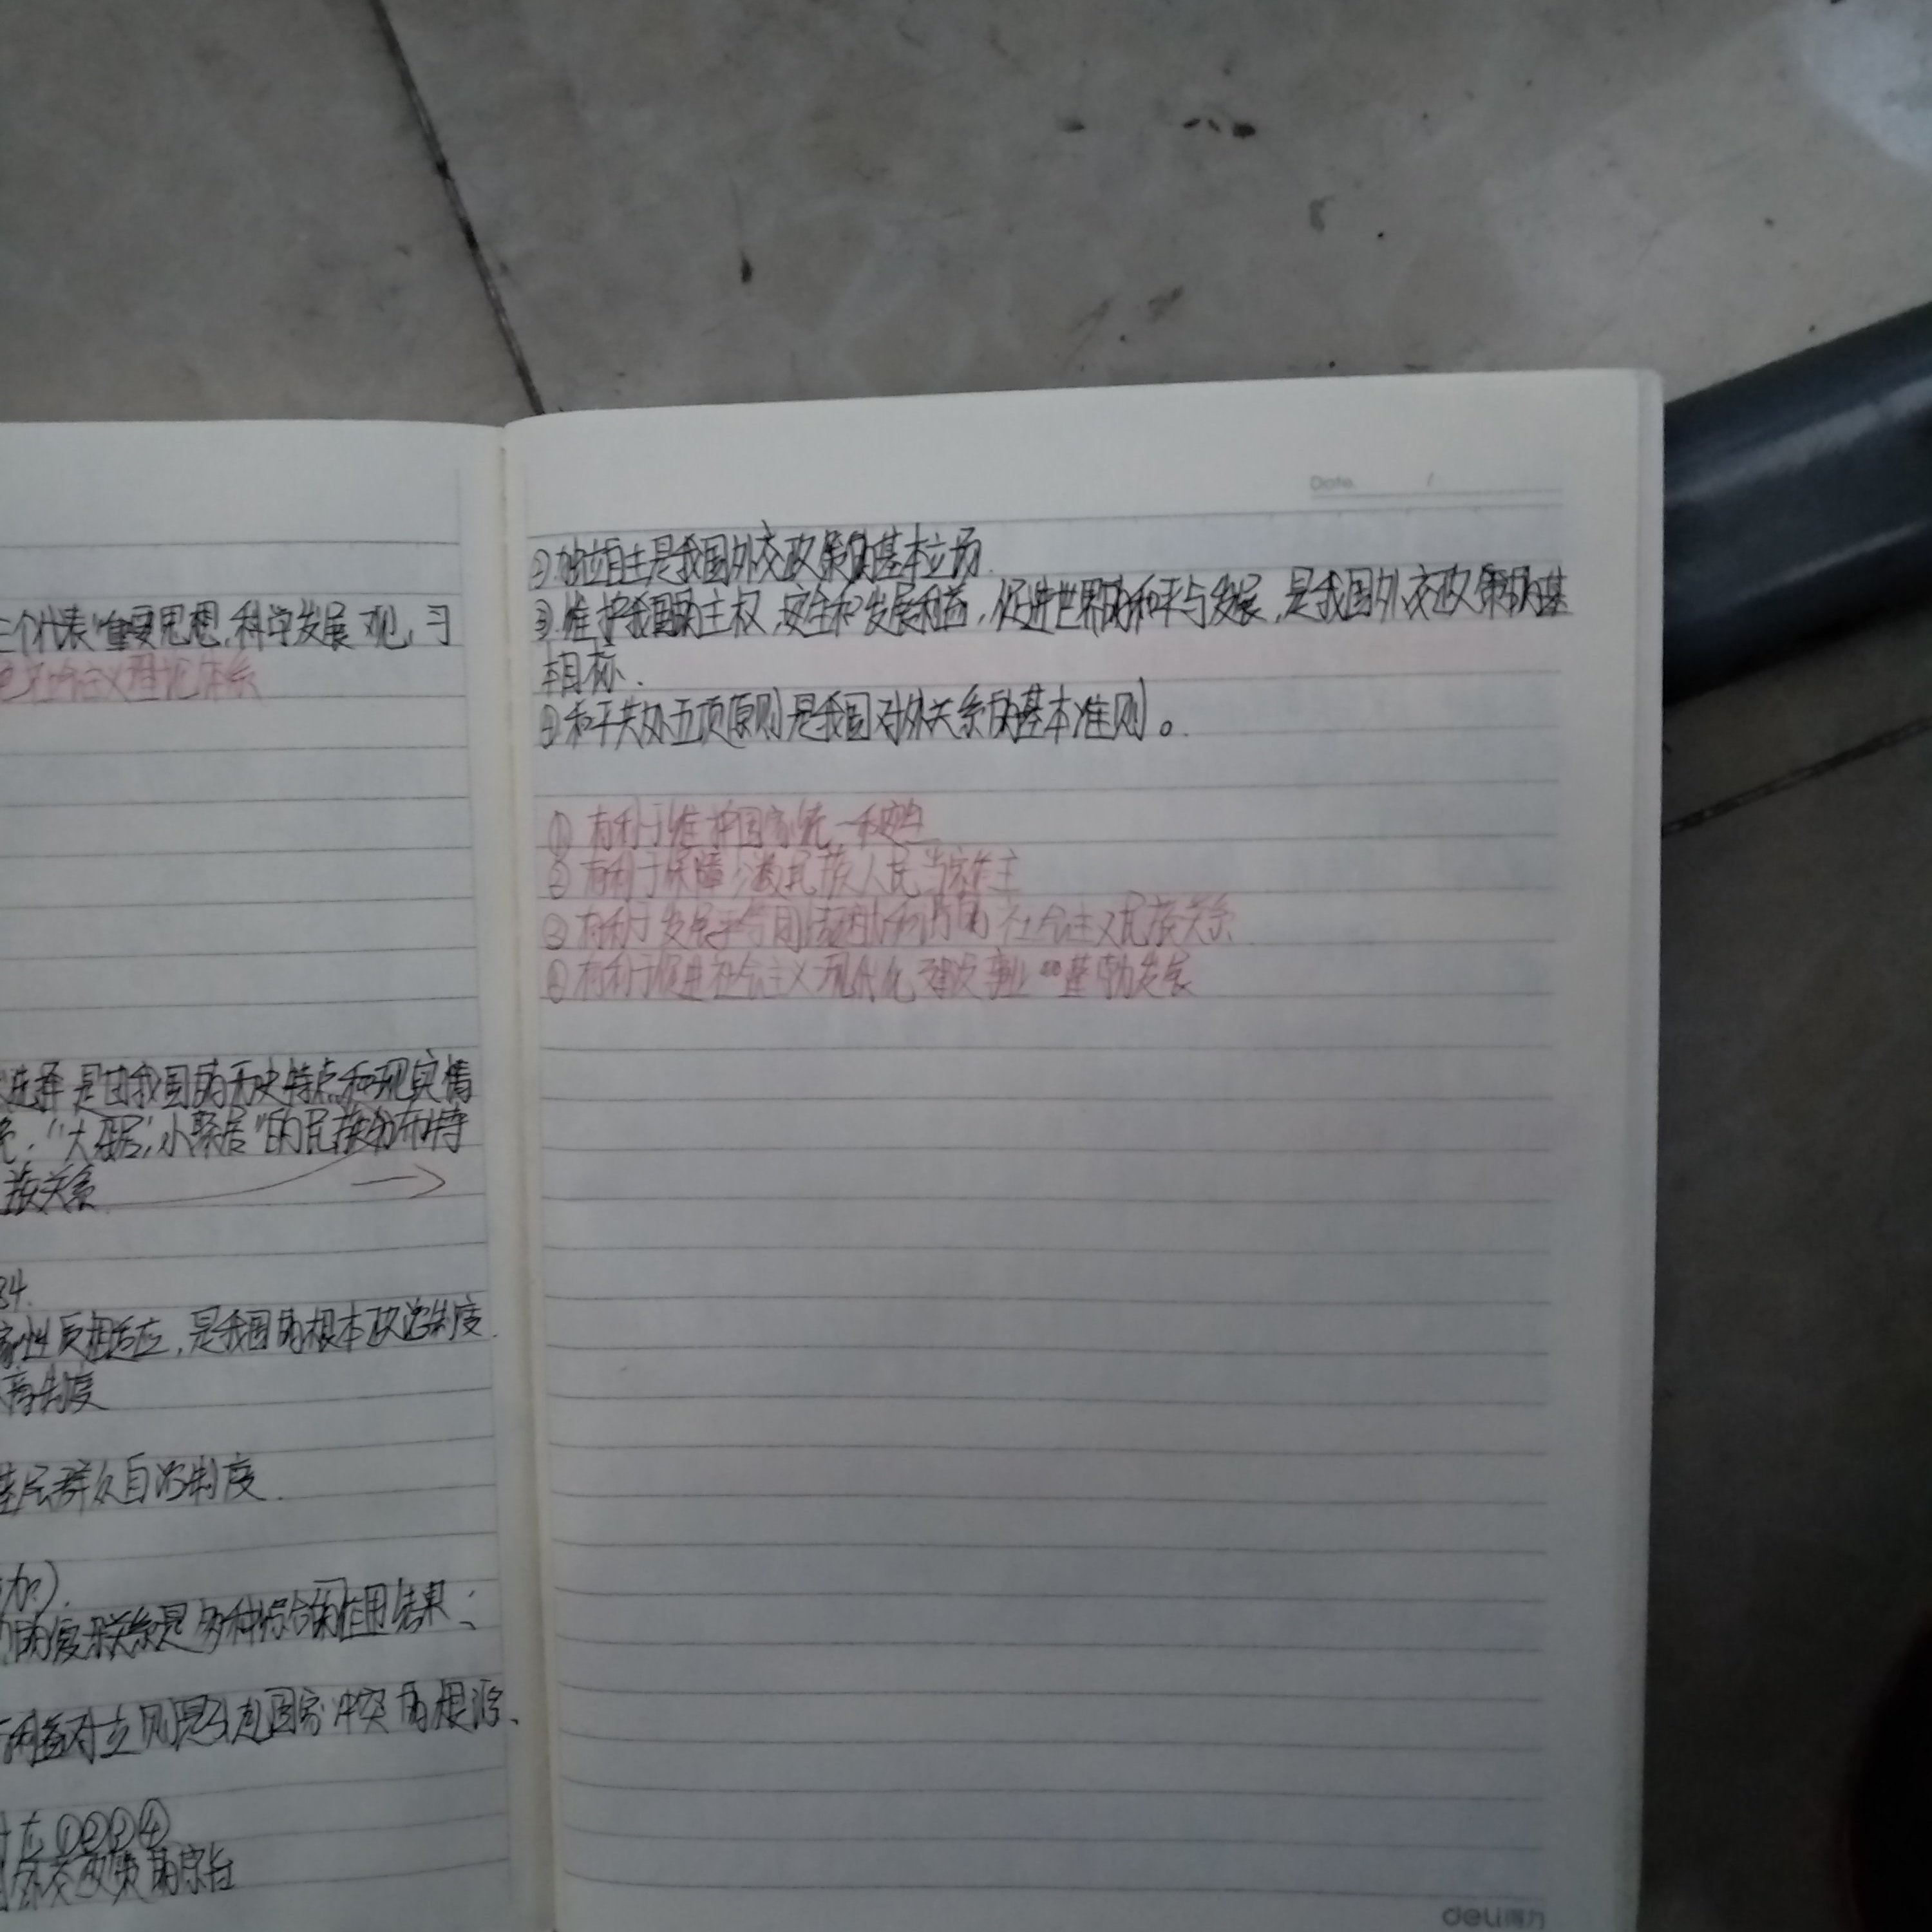 三个代表"重要思想,科学发展观,习
色社会主义理论体系
选择是由我国的历史特点和现实情
"大杂居,小聚居"的民族分布特
族关系
34.
家性质相适应,是我国的根本政治制度.
商制度
基层群众自治制度.
加).
的复杂关系是多种综合的作用结果;
利益对立则是引起国家冲突的根源、
①②③④
外交政策的宗旨
Date. /
②.独立自主是我国外交政策的基本立场.
③.维护我国的主权,安全和发展利益,促进世界的和平与发展,是我国外交政策的基
本目标.
④和平共处五项原则是我国对外关系的基本准则。
① 有利于维护国家统一和安全
② 有利于保障少数民族人民当家作主
③ 有利于发展平等团结互助和谐的社会主义民族关系
④ 有利于促进社会主义现代化建设事业 蓬勃发展
deli得力